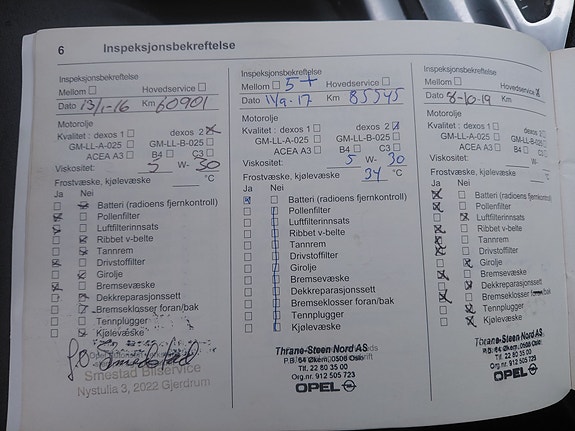 6 Inspeksjonsbekreftelse
Inspeksjonsbekreftelse
Mellom Hovedservice
Dato 13/1-16 Km 60901
Motorolje
Kvalitet : dexos 1 dexos 2
GM-LL-A-025 GM-LL-B-025
ACEA A3 B4 C3
Viskositet: 5 W- 30
Frostvæske, kjølevæske °C
Ja Nei
Batteri (radioens fjernkontroll)
Pollenfilter
Luftfilterinnsats
Ribbet v-belte
Tannrem
Drivstoffilter
Girolje
Bremsevæske
Dekkreparasjonssett
Bremseklosser foran/bak
Tennplugger
Kjølevæske
Smestad Bilservice
Nystulia 3, 2022 Gjerdrum
Inspeksjonsbekreftelse
Mellom 5+ Hovedservice
Dato 11/9-17 Km 85545
Motorolje
Kvalitet : dexos 1 dexos 2
GM-LL-A-025 GM-LL-B-025
ACEA A3 B4 C3
Viskositet: 5 W- 30
Frostvæske, kjølevæske 34 °C
Ja Nei
Batteri (radioens fjernkontroll)
Pollenfilter
Luftfilterinnsats
Ribbet v-belte
Tannrem
Drivstoffilter
Girolje
Bremsevæske
Dekkreparasjonssett
Bremseklosser foran/bak
Tennplugger
Kjølevæske
Thrane-Steen Nord AS
P.B. 64 Økern, 0508 Oslo
Tlf. 22 80 35 00
Org.nr. 912 505 723
OPEL
Inspeksjonsbekreftelse
Mellom Hovedservice
Dato 8-10-19 Km
Motorolje
Kvalitet : dexos 1 dexos 2
GM-LL-A-025 GM-LL-B-025
ACEA A3 B4 C3
Viskositet: W-
Frostvæske, kjølevæske °C
Ja Nei
Batteri (radioens fjernkontroll)
Pollenfilter
Luftfilterinnsats
Ribbet v-belte
Tannrem
Drivstoffilter
Girolje
Bremsevæske
Dekkreparasjonssett
Bremseklosser foran/bak
Tennplugger
Kjølevæske
Thrane-Steen Nord AS
P.B. 64 Økern, 0508 Oslo
Tlf. 22 80 35 00
Org.nr. 912 505 723
OPEL